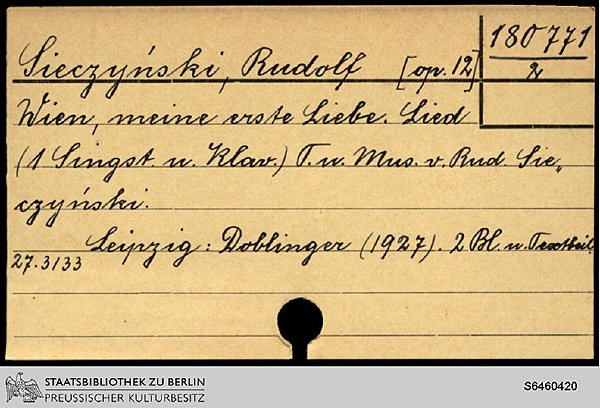 Sieczyński, Rudolf [op. 12]
180 771
2
Wien, meine erste Liebe. Lied
(1 Singst. u. Klav.) T. u. Mus. v. Rud. Sie„
czyński.
Leipzig: Doblinger (1927). 2 Bl. u. Textbeil.
27.3133
STAATSBIBLIOTHEK ZU BERLIN
PREUSSISCHER KULTURBESITZ
S6460420